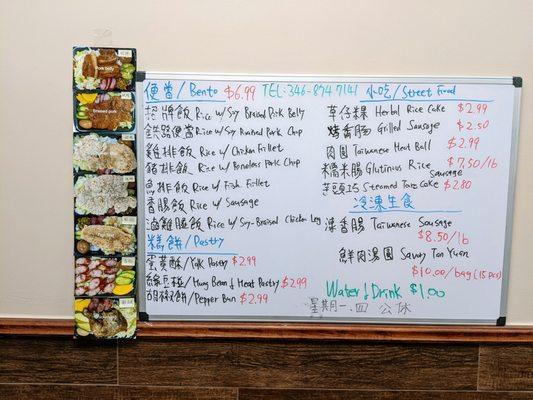 便當/Bento $6.99 TEL:346-874 7141
招牌飯 Rice w/Soy Braised Pork Belly
鐵路便當 Rice w/ Soy Braised Pork Chop
雞排飯 Rice w/ Chicken Fillet
豬排飯 Rice w/ Boneless Pork Chop
魚排飯 Rice w/ Fish Fillet
香腸飯 Rice w/ Sausage
滷雞腿飯 Rice w/ Soy-Braised Chicken Leg
糕餅/Pastry
蛋黃酥/Yolk Pastry $2.99
綠豆椪/Mung Bean & Meat Pastry $2.99
胡椒餅/Pepper Bun $2.99
小吃/Street Food
草仔粿 Herbal Rice Cake $2.99
烤香腸 Grilled Sausage $2.50
肉圓 Taiwanese Meat Ball $2.99
糯米腸 Glutinous Rice Sausage $7.50/lb
芋頭巧 Steamed Taro Cake $2.80
冷凍生食
凍香腸 Taiwanese Sausage
$8.50/lb
鮮肉湯圓 Savory Tan Yuen
$10.00/bag (15 pcs)
Water & Drink $1.00
星期一、四 公休
pork belly
braised pork